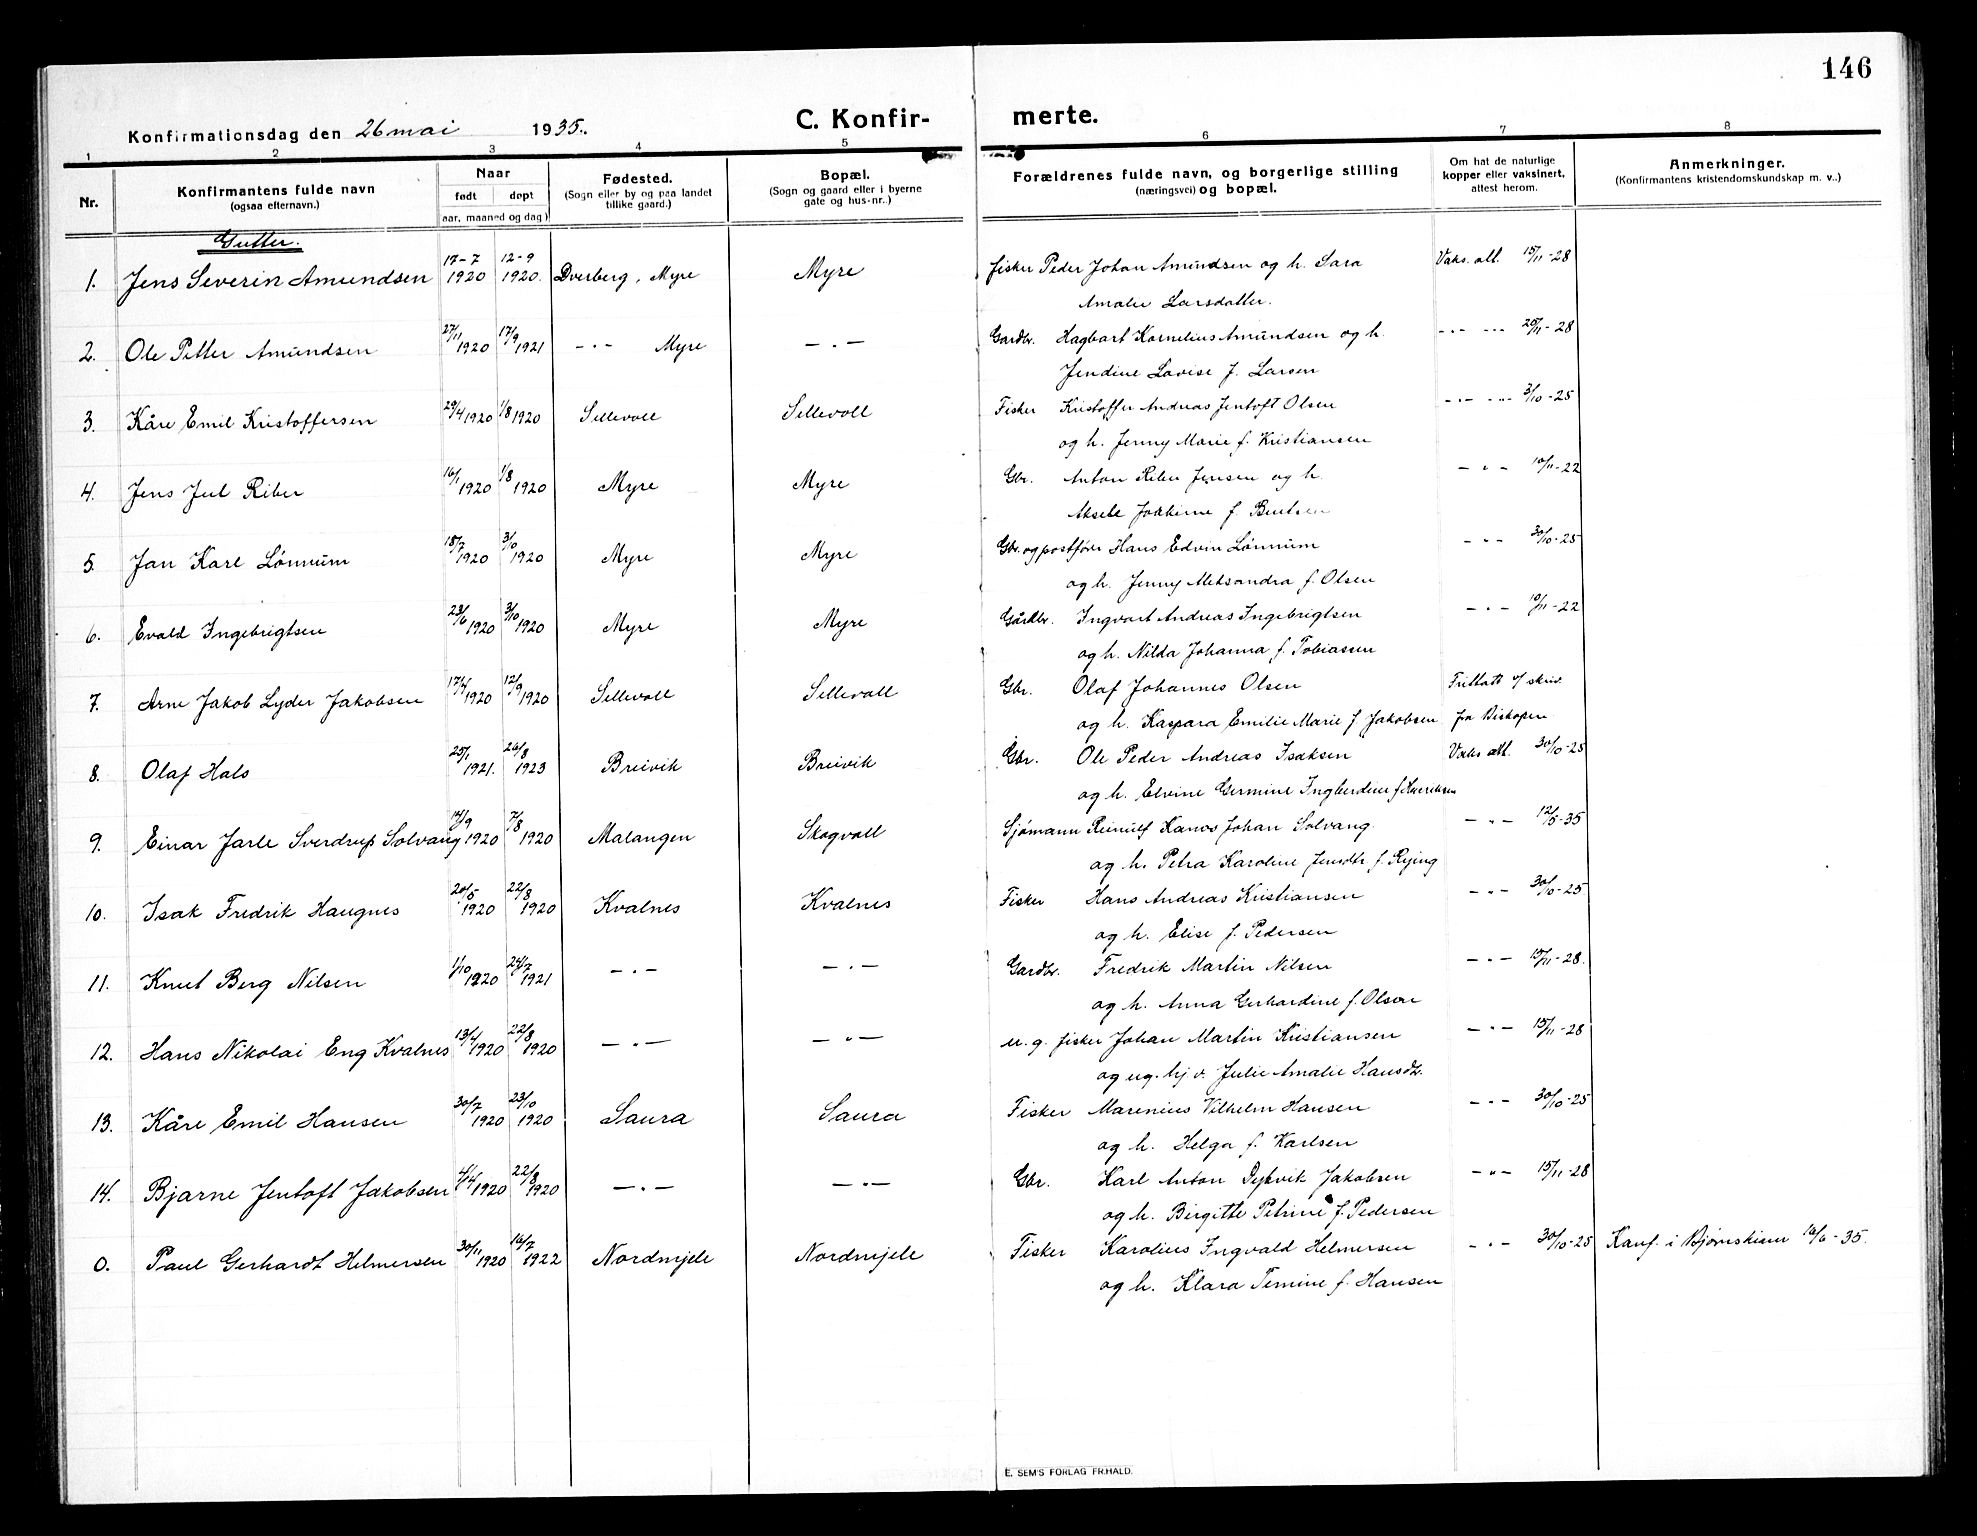 146
Konfirmationsdag den 26 mai 1935. C. Konfir- merte.
1 2 3 4 5 6 7 8
Nr. Konfirmantens fulde navn (ogsaa efternavn.) Naar født døpt aar, maaned og dag) Fødested. (Sogn eller by og paa landet tillike gaard.) Bopæl. (Sogn og gaard eller i byerne gate og hus-nr..) Forældrenes fulde navn, og borgerlige stilling (næringsvei) og bopæl. Om hat de naturlige kopper eller vaksinert, attest herom. Anmerkninger. (Konfirmantens kristendomskundskap m. v..)
Gutter.
1. Jens Severin Amundsen 17-7 1920 12-9 1920. Dverberg, Myre Myre fisker Peder Johan Amundsen og h. Sara Vaks. att. 15/11-28
Amalie Larsdatter.
2. Ole Petter Amundsen 27/11 1920 17/9 1921 -"- Myre -"- Gardbr. Hagbart Kornelius Amundsen og h. -"- -"- 25/11-28
Jendine Lovise f. Larsen
3. Kåre Emil Kristoffersen 29/4 1920 1/8 1920 Sellevoll Sellevoll Fisker Kristoffer Andreas Jentoft Olsen -"- -"- 3/10-25
og h. Jenny Marie f. Kristiansen
4. Jens Jul Riber 16/1 1920 1/8 1920 Myre Myre Gbr. Anton Riber Jensen og h. -"- 10/11-22
Aksele Joakime f. Bentsen
5. Jan Karl Lønnum 18/7 1920 3/10 1920 Myre Myre Gbr. og postfører Hans Edvin Lønnum -"- 30/10-25
og h. Jenny Aleksandra f. Olsen
6. Evald Ingebrigtsen 23/6 1920 3/10 1920 Myre Myre Gårdbr. Ingvart Andreas Ingebrigtsen -"- 10/11-22
og h. Nilda Johanna f. Tobiassen
7. Arne Jakob Lyder Jakobsen 17/4 1920 12/9 1920 Sellevoll Sellevoll Gbr. Olaf Johannes Olsen Fritatt e/ skriv.
og h. Kaspara Emilie Marie f. Jakobsen fra Biskopen
8. Olaf Hals 25/1 1921. 26/8 1923 Breivik Breivik Gbr. Ole Peder Andreas Isaksen Vaks att. 30/10-25
og h. Elvine Germine Ingberdine f. Henriksen
9. Einar Jarle Sverdrup Solvang 14/9 1920 7/8 1920 Malangen Skogvoll Sjømann Reinulf Hanos Johan Solvang. -"- 12/5-35
og h. Petra Karoline Jensdtr f. Rying
10. Isak Fredrik Haugnes 20/5 1920 22/8 1920 Kvalnes Kvalnes Fisker Hans Andreas Kristiansen -"- 30/10-25
og h. Elise f. Pedersen
11. Knut Berg Nilsen 1/10 1920 24/7 1921 -"- -"- Gardbr. Fredrik Martin Nilsen -"- 15/11-28.
og h. Anna Gerhardine f. Olsen
12. Hans Nikolai Eng Kvalnes 13/4 1920 22/8 1920 -"- -"- u. g. fisker Johan Martin Kristiansen -"- 15/11-28
og ug. hj. v. Julie Amalie Hansdtr.
13. Kåre Emil Hansen 30/7 1920 23/10 1920 Saura Saura Fisker Marenius Vilhelm Hansen -"- 30/10-25
og h. Helga f. Karlsen
14. Bjarne Jentoft Jakobsen 4/4 1920 22/8 1920 -"- -"- Gbr. Karl Anton Dykvik Jakobsen -"- 15/11-28
og h. Birgitte Petrine f. Pedersen
0. Paul Gerhardt Helmersen 30/11 1920 16/7 1922 Nordmjele Nordmjele Fisker Karolius Ingvald Helmersen -"- 30/10-25 Konf. i Bjørnskinn 16/6-35.
og h. Klara Temine f. Hansen
E. SEM'S FORLAG FR.HALD.